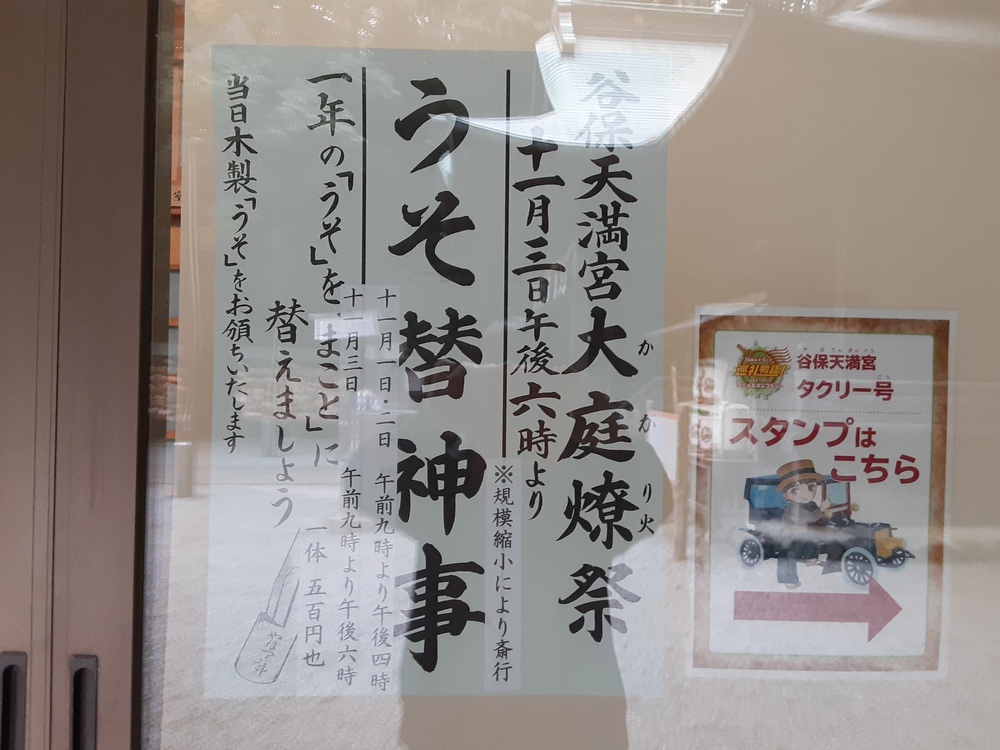 谷保天満宮大庭燎祭
かがり火
十一月三日午後六時より
※規模縮小により斎行
うそ替神事
十一月一日・二日 午前九時より午後四時
十一月三日 午前九時より午後六時
一年の「うそ」を「まこと」に
替えましょう
一体 五百円也
当日木製「うそ」をお頒ちいたします
巡礼物語
谷保天満宮
タクリー号
スタンプは
こちら